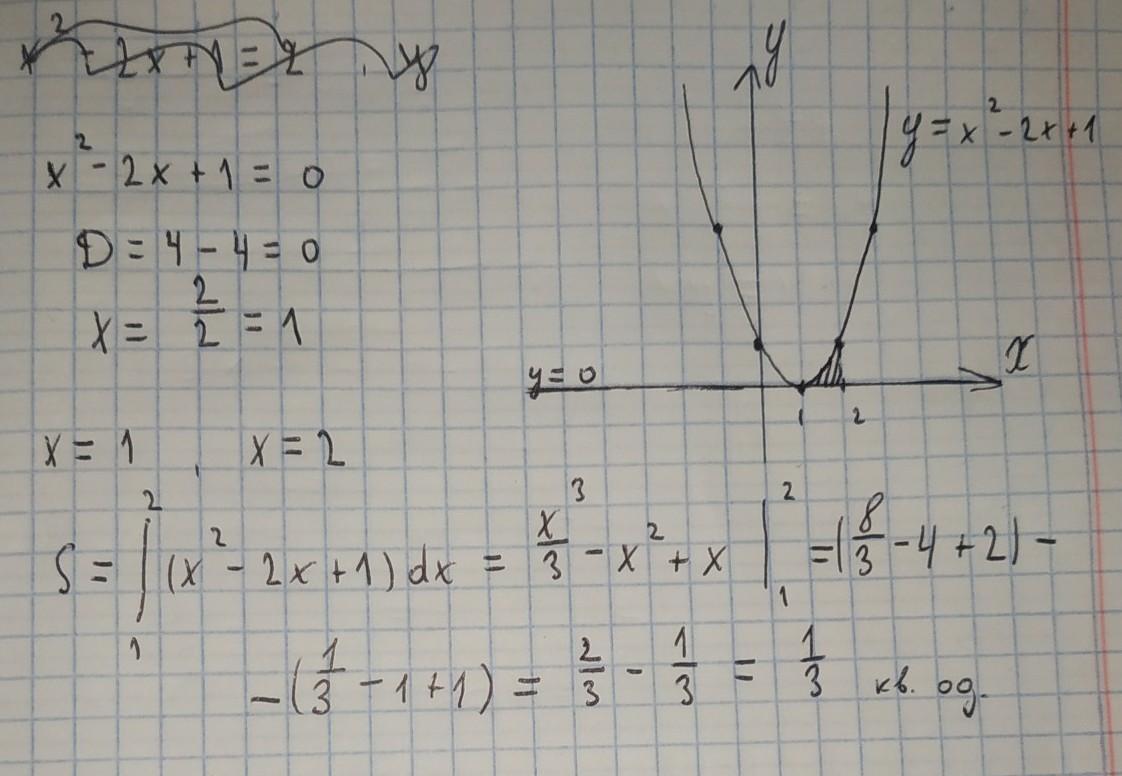 x² - 2x + 1 = 2
x² - 2x + 1 = 0
D = 4 - 4 = 0
x = 2/2 = 1
x = 1, x = 2
y
y = x² - 2x + 1
y = 0
x
1 2
S = ∫₁² (x² - 2x + 1) dx = x³/3 - x² + x |₁² = (8/3 - 4 + 2) -
- (1/3 - 1 + 1) = 2/3 - 1/3 = 1/3 кв. од.